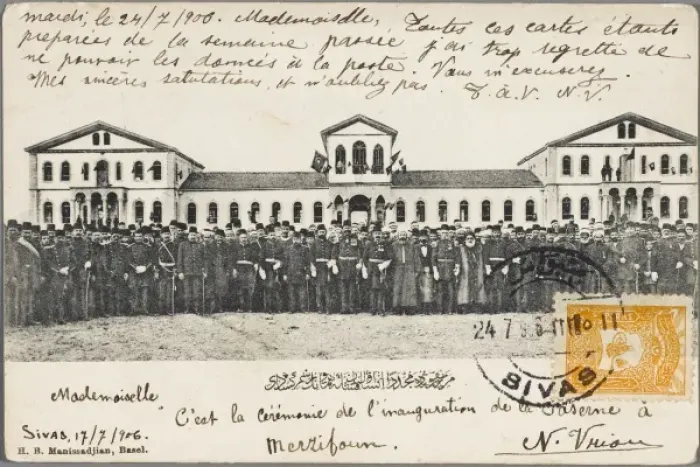 mardi, le 24/7/906. Mademoiselle,
Toutes ces cartes étants
préparées de la semaine passée j'ai trop regretté de
ne pouvoir les donnés à la poste. Vous m'excuserez.
Mes sincères salutations, et n'oubliez pas. T. à. V. N. V.
24 7 906 11
SIVAS
Mademoiselle
"C'est la cérémonie de l'inauguration de la Caserne à
Merzifoun.
Sivas, 17/7/906.
N. Vriou
H. B. Manissadjian, Basel.